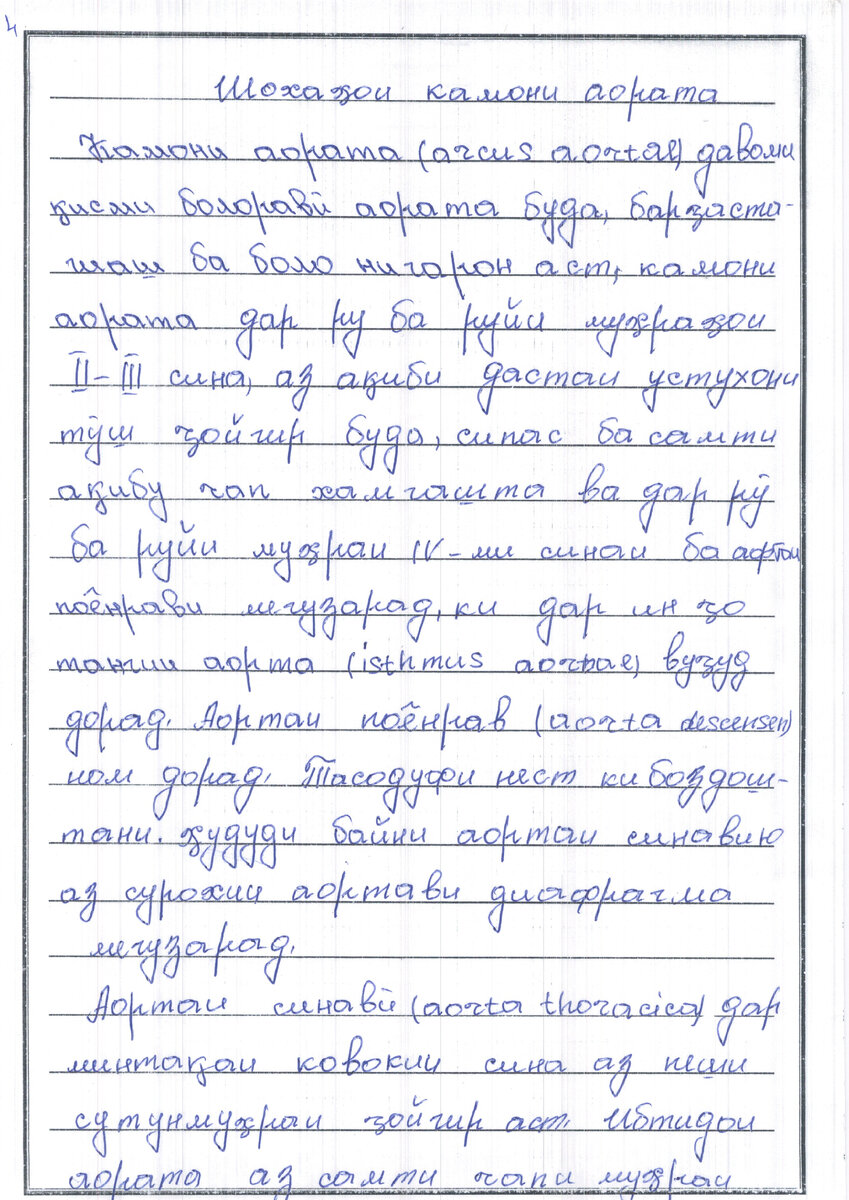 4
Шохаҳои камони аората
Камони аората (arcus aortae) давоми
қисми болоравӣ аората буда, барҷаста-
шаш ба боло нигарон аст, камони
аората дар рӯ ба рӯйи муҳраҳои
II-III сина, аз ақиби дастаи устухони
тӯш ҷойгир буда, сипас ба самти
ақибу чап хамгашта ва дар рӯ
ба рӯйи муҳраи IV-ми синаи ба аортаи
поёнрави мегузарад, ки дар ин ҷо
тангии аорта (isthmus aortae) вуҷуд
дорад. Аортаи поёнрав (aorta descensen)
ном дорад. Тасодуфи нест ки боздош-
тани. ҳудуди байни аортаи синавию
аз сурохии аортави диафрагма
мегузарад.
Аортаи синавӣ (aorta thoracica) дар
минтақаи ковокии сина аз пеши
сутунмуҳраи ҷойгир аст. Ибтидои
аората аз самти чапи муҳраи